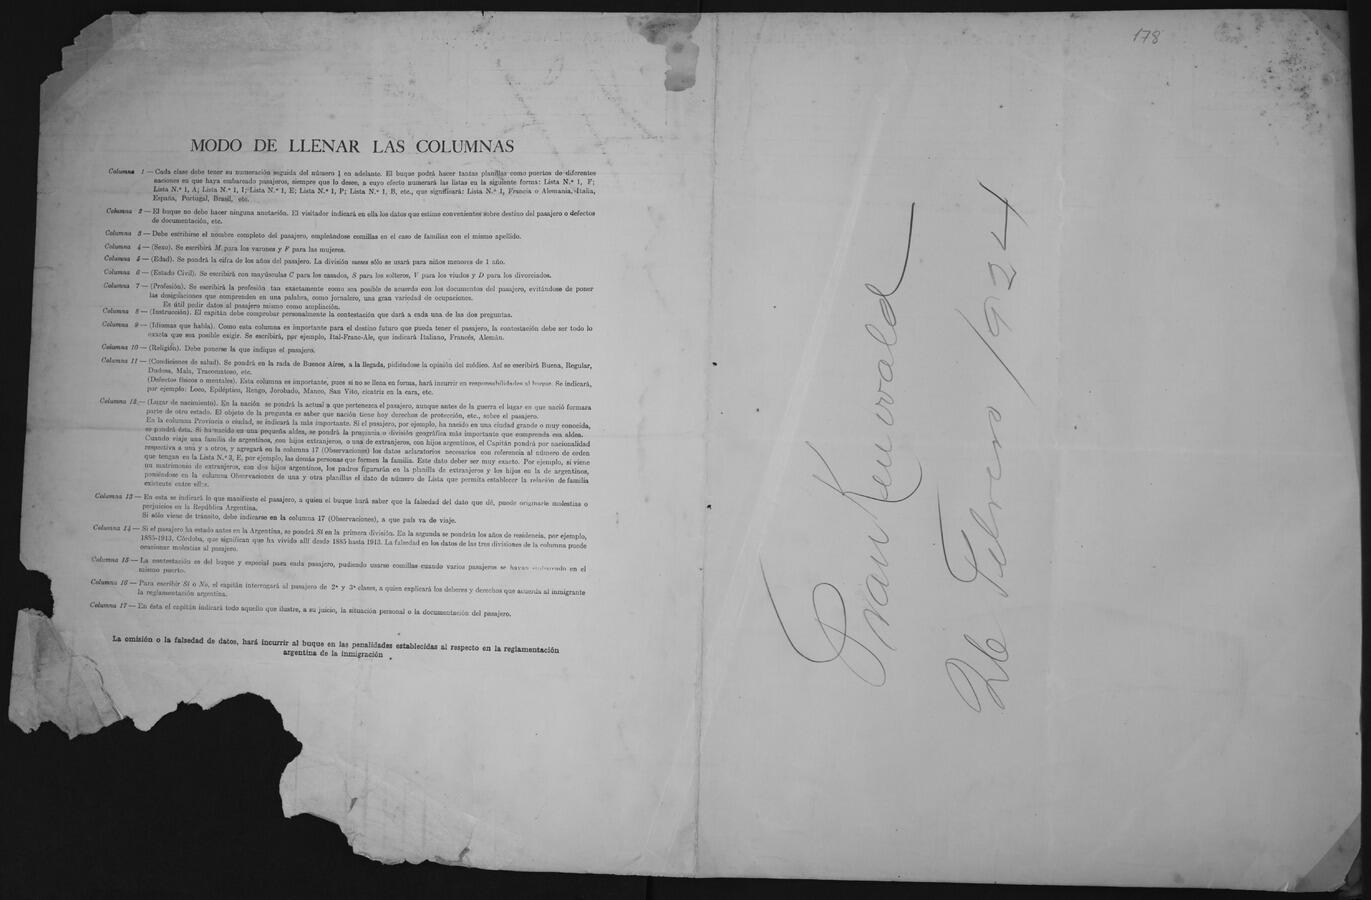 MODO DE LLENAR LAS COLUMNAS
Columna 1 — Cada clase debe tener su numeración seguida del número 1 en adelante. El buque podrá hacer tantas planillas como puertos de diferentes
naciones en que haya embarcado pasajeros, siempre que lo desee, a cuyo efecto numerará las listas en la siguiente forma: Lista N.º 1, F;
Lista N.º 1, A; Lista N.º 1, I; Lista N.º 1, E; Lista N.º 1, P; Lista N.º 1, B, etc., que significará: Lista N.º 1, Francia o Alemania, Italia,
España, Portugal, Brasil, etc.
Columna 2 — El buque no debe hacer ninguna anotación. El visitador indicará en ella los datos que estime convenientes sobre destino del pasajero o defectos
de documentación, etc.
Columna 3 — Debe escribirse el nombre completo del pasajero, empleándose comillas en el caso de familias con el mismo apellido.
Columna 4 — (Sexo). Se escribirá M para los varones y F para las mujeres.
Columna 5 — (Edad). Se pondrá la cifra de los años del pasajero. La división meses sólo se usará para niños menores de 1 año.
Columna 6 — (Estado Civil). Se escribirá con mayúsculas C para los casados, S para los solteros, V para los viudos y D para los divorciados.
Columna 7 — (Profesión). Se escribirá la profesión tan exactamente como sea posible de acuerdo con los documentos del pasajero, evitándose de poner
las designaciones que comprenden en una palabra, como jornalero, una gran variedad de ocupaciones.
Es útil pedir datos al pasajero mismo como ampliación.
Columna 8 — (Instrucción). El capitán debe comprobar personalmente la contestación que dará a cada una de las dos preguntas.
Columna 9 — (Idiomas que habla). Como esta columna es importante para el destino futuro que pueda tener el pasajero, la contestación debe ser todo lo
exacta que sea posible exigir. Se escribirá, por ejemplo, Ital-Franc-Ale, que indicará Italiano, Francés, Alemán.
Columna 10 — (Religión). Debe ponerse la que indique el pasajero.
Columna 11 — (Condiciones de salud). Se pondrá en la rada de Buenos Aires, a la llegada, pidiéndose la opinión del médico. Así se escribirá Buena, Regular,
Dudosa, Mala, Tracomatoso, etc.
(Defectos físicos o mentales). Esta columna es importante, pues si no se llena en forma, hará incurrir en responsabilidades al buque. Se indicará,
por ejemplo: Loco, Epiléptico, Rengo, Jorobado, Manco, San Vito, cicatriz en la cara, etc.
Columna 12.— (Lugar de nacimiento). En la nación se pondrá la actual a que pertenezca el pasajero, aunque antes de la guerra el lugar en que nació formara
parte de otro estado. El objeto de la pregunta es saber que nación tiene hoy derechos de protección, etc., sobre el pasajero.
En la columna Provincia o ciudad, se indicará la más importante. Si el pasajero, por ejemplo, ha nacido en una ciudad grande o muy conocida,
se pondrá ésta. Si ha nacido en una pequeña aldea, se pondrá la provincia o división geográfica más importante que comprenda esa aldea.
Cuando viaje una familia de argentinos, con hijos extranjeros, o una de extranjeros, con hijos argentinos, el Capitán pondrá por nacionalidad
respectiva a una y a otros, y agregará en la columna 17 (Observaciones) los datos aclaratorios necesarios con referencia al número de orden
que tengan en la Lista N.º 3, E, por ejemplo, las demás personas que formen la familia. Este dato deber ser muy exacto. Por ejemplo, si viene
un matrimonio de extranjeros, con dos hijos argentinos, los padres figurarán en la planilla de extranjeros y los hijos en la de argentinos,
poniéndose en la columna Observaciones de una y otra planillas el dato de número de Lista que permita establecer la relación de familia
existente entre ellos.
Columna 13 — En esta se indicará lo que manifieste el pasajero, a quien el buque hará saber que la falsedad del dato que dé, puede originarle molestias o
perjuicios en la República Argentina.
Si sólo viene de tránsito, debe indicarse en la columna 17 (Observaciones), a que país va de viaje.
Columna 14 — Si el pasajero ha estado antes en la Argentina, se pondrá Sí en la primera división. En la segunda se pondrán los años de residencia, por ejemplo,
1885-1913, Córdoba, que significan que ha vivido allí desde 1885 hasta 1913. La falsedad en los datos de las tres divisiones de la columna puede
ocasionar molestias al pasajero.
Columna 15 — La contestación es del buque y especial para cada pasajero, pudiendo usarse comillas cuando varios pasajeros se hayan embarcado en el
mismo puerto.
Columna 16 — Para escribir Sí o No, el capitán interrogará al pasajero de 2ª y 3ª clases, a quien explicará los deberes y derechos que acuerda al inmigrante
la reglamentación argentina.
Columna 17 — En ésta el capitán indicará todo aquello que ilustre, a su juicio, la situación personal o la documentación del pasajero.
La omisión o la falsedad de datos, hará incurrir al buque en las penalidades establecidas al respecto en la reglamentación
argentina de la inmigración .
178
26 Febrero 1924